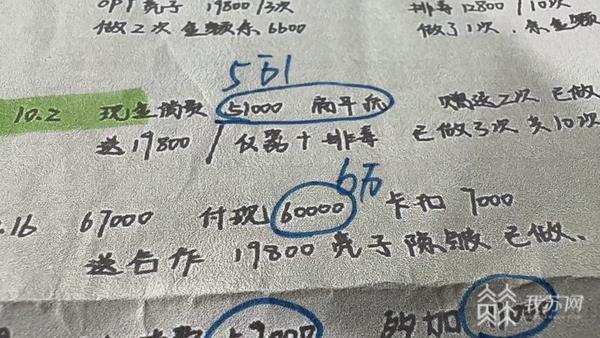 OPT 壳子 19800/3次 排毒 12800/10次
做2次 金额余6600 做了1次.余金额
5万1
10.2 现金消费 51000 赠送2次 已做
送19800/仪器+排毒 已做3次 共10次
6万
.16 67000 付现 60000 卡扣 7000
送合作 19800 壳子 除皱 已做.
的加
我苏网